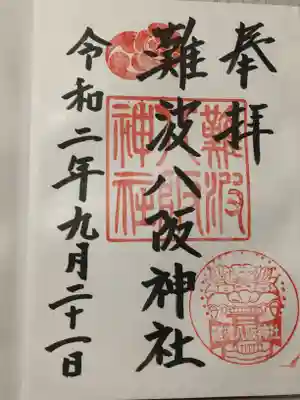 奉拝
難波八阪神社
令和二年九月二十一日
難波八阪神社
難波八阪神社